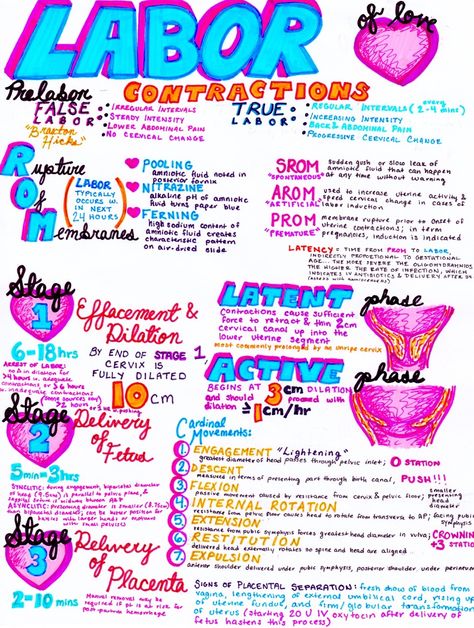 LABOR
of love
Prelabor
CONTRACTIONS
FALSE LABOR:
"Braxton Hicks"
Irregular Intervals
Steady Intensity
Lower Abdominal Pain
No Cervical Change
TRUE LABOR:
Regular Intervals (every 2-4 mins)
Increasing Intensity
Back & Abdominal Pain
Progressive Cervical Change
Rupture
Of
Membranes
(LABOR TYPICALLY OCCURS W. IN NEXT 24 HOURS)
POOLING
amniotic fluid noted in
posterior fornix
NITRAZINE
alkaline pH of amniotic
fluid turns paper blue
FERNING
high sodium content of
amniotic fluid creates
characteristic pattern
on air-dried slide
SROM
"SPONTANEOUS"
sudden gush or slow leak of
amniotic fluid that can happen
at any time without warning
AROM
"ARTIFICIAL"
used to increase uterine activity &
speed cervical change in cases of
labor induction
PROM
"PREMATURE"
membrane rupture prior to onset of
uterine contractions; in term
pregnancies, induction is indicated
LATENCY = TIME FROM PROM TO LABOR,
INDIRECTLY PROPORTIONAL TO GESTATIONAL
AGE... THE MORE SEVERE THE OLIGOHYDRAMNIOS
THE HIGHER THE RATE OF INFECTION, WHICH
INDICATES IV ANTIBIOTICS & DELIVERY AFTER
Stage
1
Effacement &
Dilation
6-18hrs
ARREST OF LABOR:
BY END OF STAGE 1
CERVIX IS
FULLY DILATED
10 cm
LATENT phase
Contractions cause sufficient
force to retract & thin 2cm
cervical canal up into the
lower uterine segment
most commonly prolonged by an unripe cervix
ACTIVE phase
BEGINS AT 3 cm DILATION
and should proceed with
dilation ≥1cm/hr
Stage
2
Delivery
of
Fetus
5min-3hrs
SYNCLITIC: during engagement, biparietal diameter
of head (9.5cm) is parallel to pelvic plane, &
Cardinal
Movements:
1. ENGAGEMENT "Lightening"
greatest diameter of head passes through pelvic inlet; 0 STATION
2. DESCENT
measured in terms of presenting part through birth canal, PUSH!!!
3. FLEXION
passive movement caused by resistance from cervix & pelvic floor; smaller presenting head diameter
4. INTERNAL ROTATION
resistance from pelvic floor causes head to rotate from transverse to AP; facing pubic symphysis
5. EXTENSION
resistance from pubic symphysis forces greatest head diameter in vulva; CROWNING
+3 STATION
6. RESTITUTION
delivered head externally rotates so spine and head are aligned
7. EXPULSION
anterior shoulder delivered under pubic symphysis, posterior shoulder under perineum
Stage
3
Delivery
of
Placenta
2-10 mins
Manual removal may be
required if pt is at risk for
post-partum hemorrhage
SIGNS OF PLACENTAL SEPARATION: fresh show of blood from
vagina, lengthening of external umbilical cord, rising up
of uterine fundus, and firm/globular transformation
of uterus (starting 20 U IV oxytocin after delivery of
fetus hastens this process)